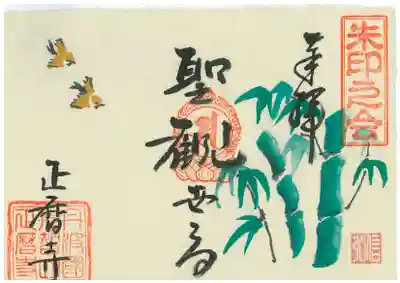 朱印之会
奉拝
聖觀世音
正暦寺